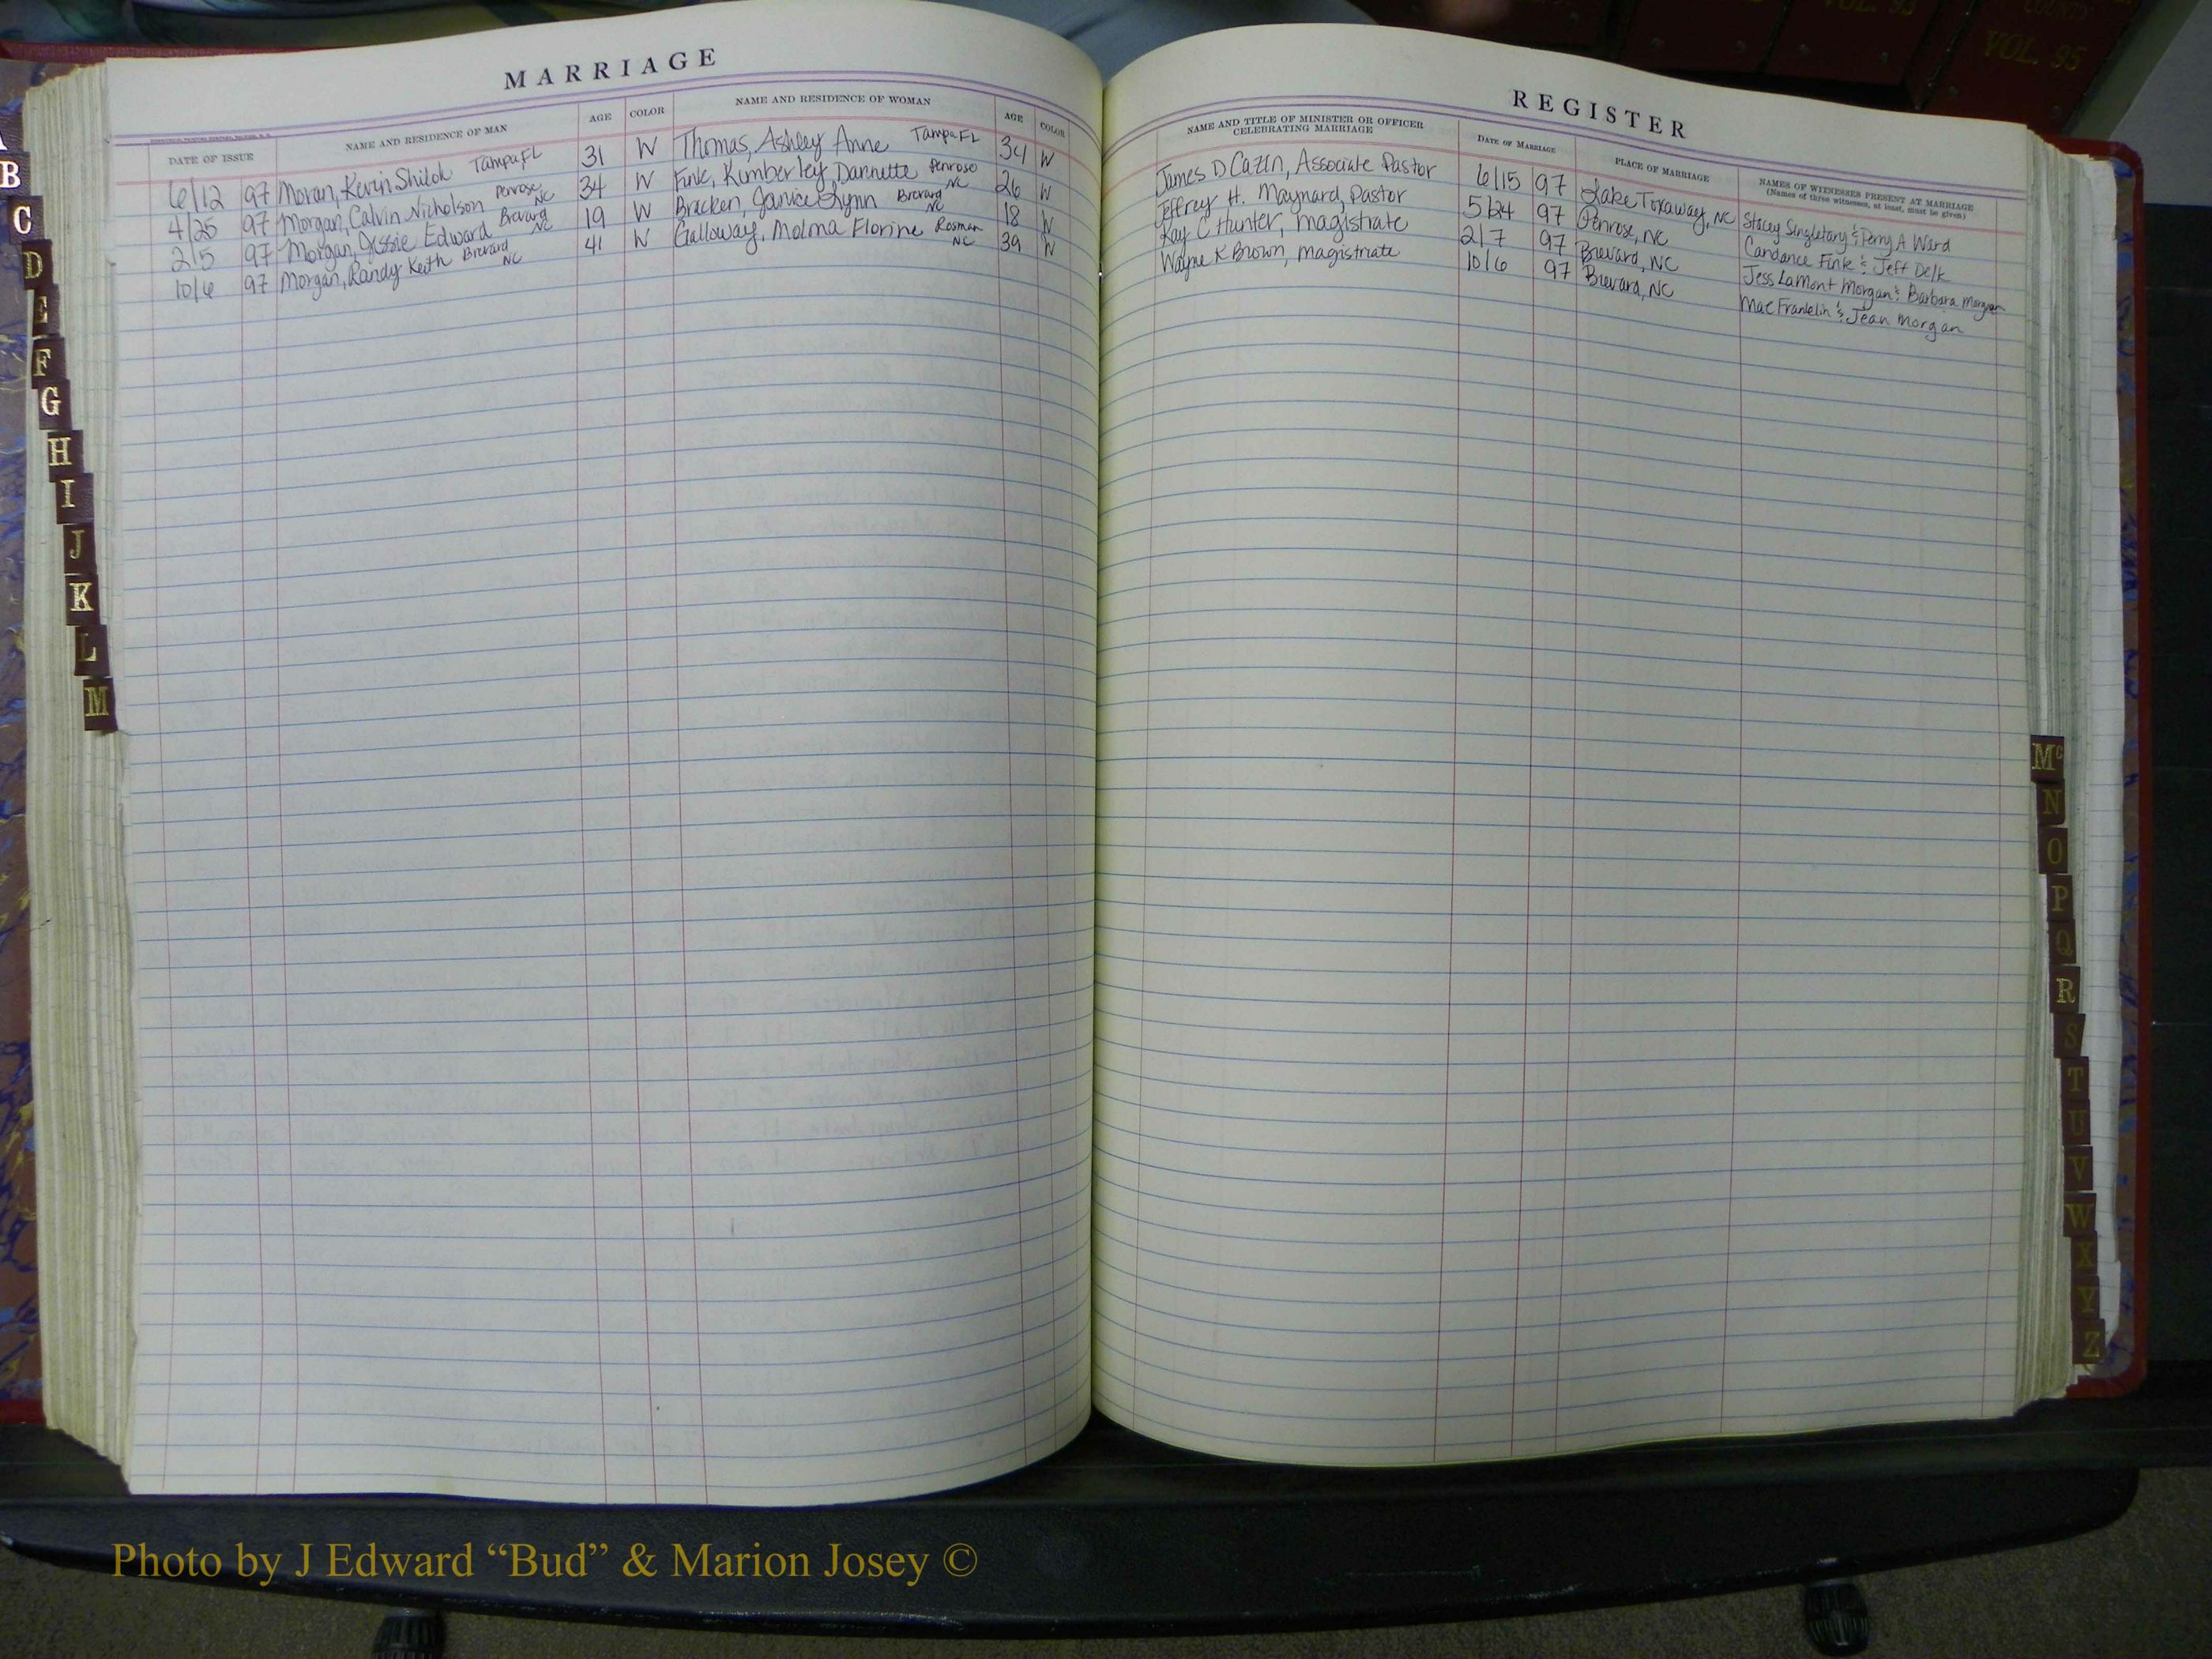 MARRIAGE
DATE OF ISSUE NAME AND RESIDENCE OF MAN AGE COLOR NAME AND RESIDENCE OF WOMAN AGE COLOR
6/12 97 Moran, Kevin Shiloh Tampa FL 31 W Thomas, Ashley Anne Tampa FL 34 W
4/25 97 Morgan, Calvin Nicholson Penrose NC 34 W Fink, Kimberley Dannette Penrose NC 26 W
2/5 97 Morgan, Jessie Edward Brevard NC 19 W Bracken, Janice Lynn Brevard NC 18 W
10/6 97 Morgan, Randy Keith Brevard NC 41 W Galloway, Molma Florine Rosman NC 39 W
REGISTER
NAME AND TITLE OF MINISTER OR OFFICER CELEBRATING MARRIAGE DATE OF MARRIAGE PLACE OF MARRIAGE NAMES OF WITNESSES PRESENT AT MARRIAGE
(Names of three witnesses, at least, must be given)
James D, Associate Pastor 6/15 97 Lake Toxaway, NC Stacey Singletary & Perry A Ward
Jeffrey H. Maynard, Pastor 5/24 97 Penrose, NC Candance Fink & Jeff Delk
Kay C Hunter, magistrate 2/7 97 Brevard, NC Jess LaMont Morgan & Barbara Morgan
Wayne K Brown, magistriate 10/6 97 Brevard, NC Mac Franklin & Jean Morgan
B
C
D
E
F
G
H
I
J
K
L
M
Mc
N
O
P
Q
R
S
T
U
V
W
X
Y
Z
VOL. 93
COUNTY
VOL. 95
Photo by J Edward “Bud” & Marion Josey ©